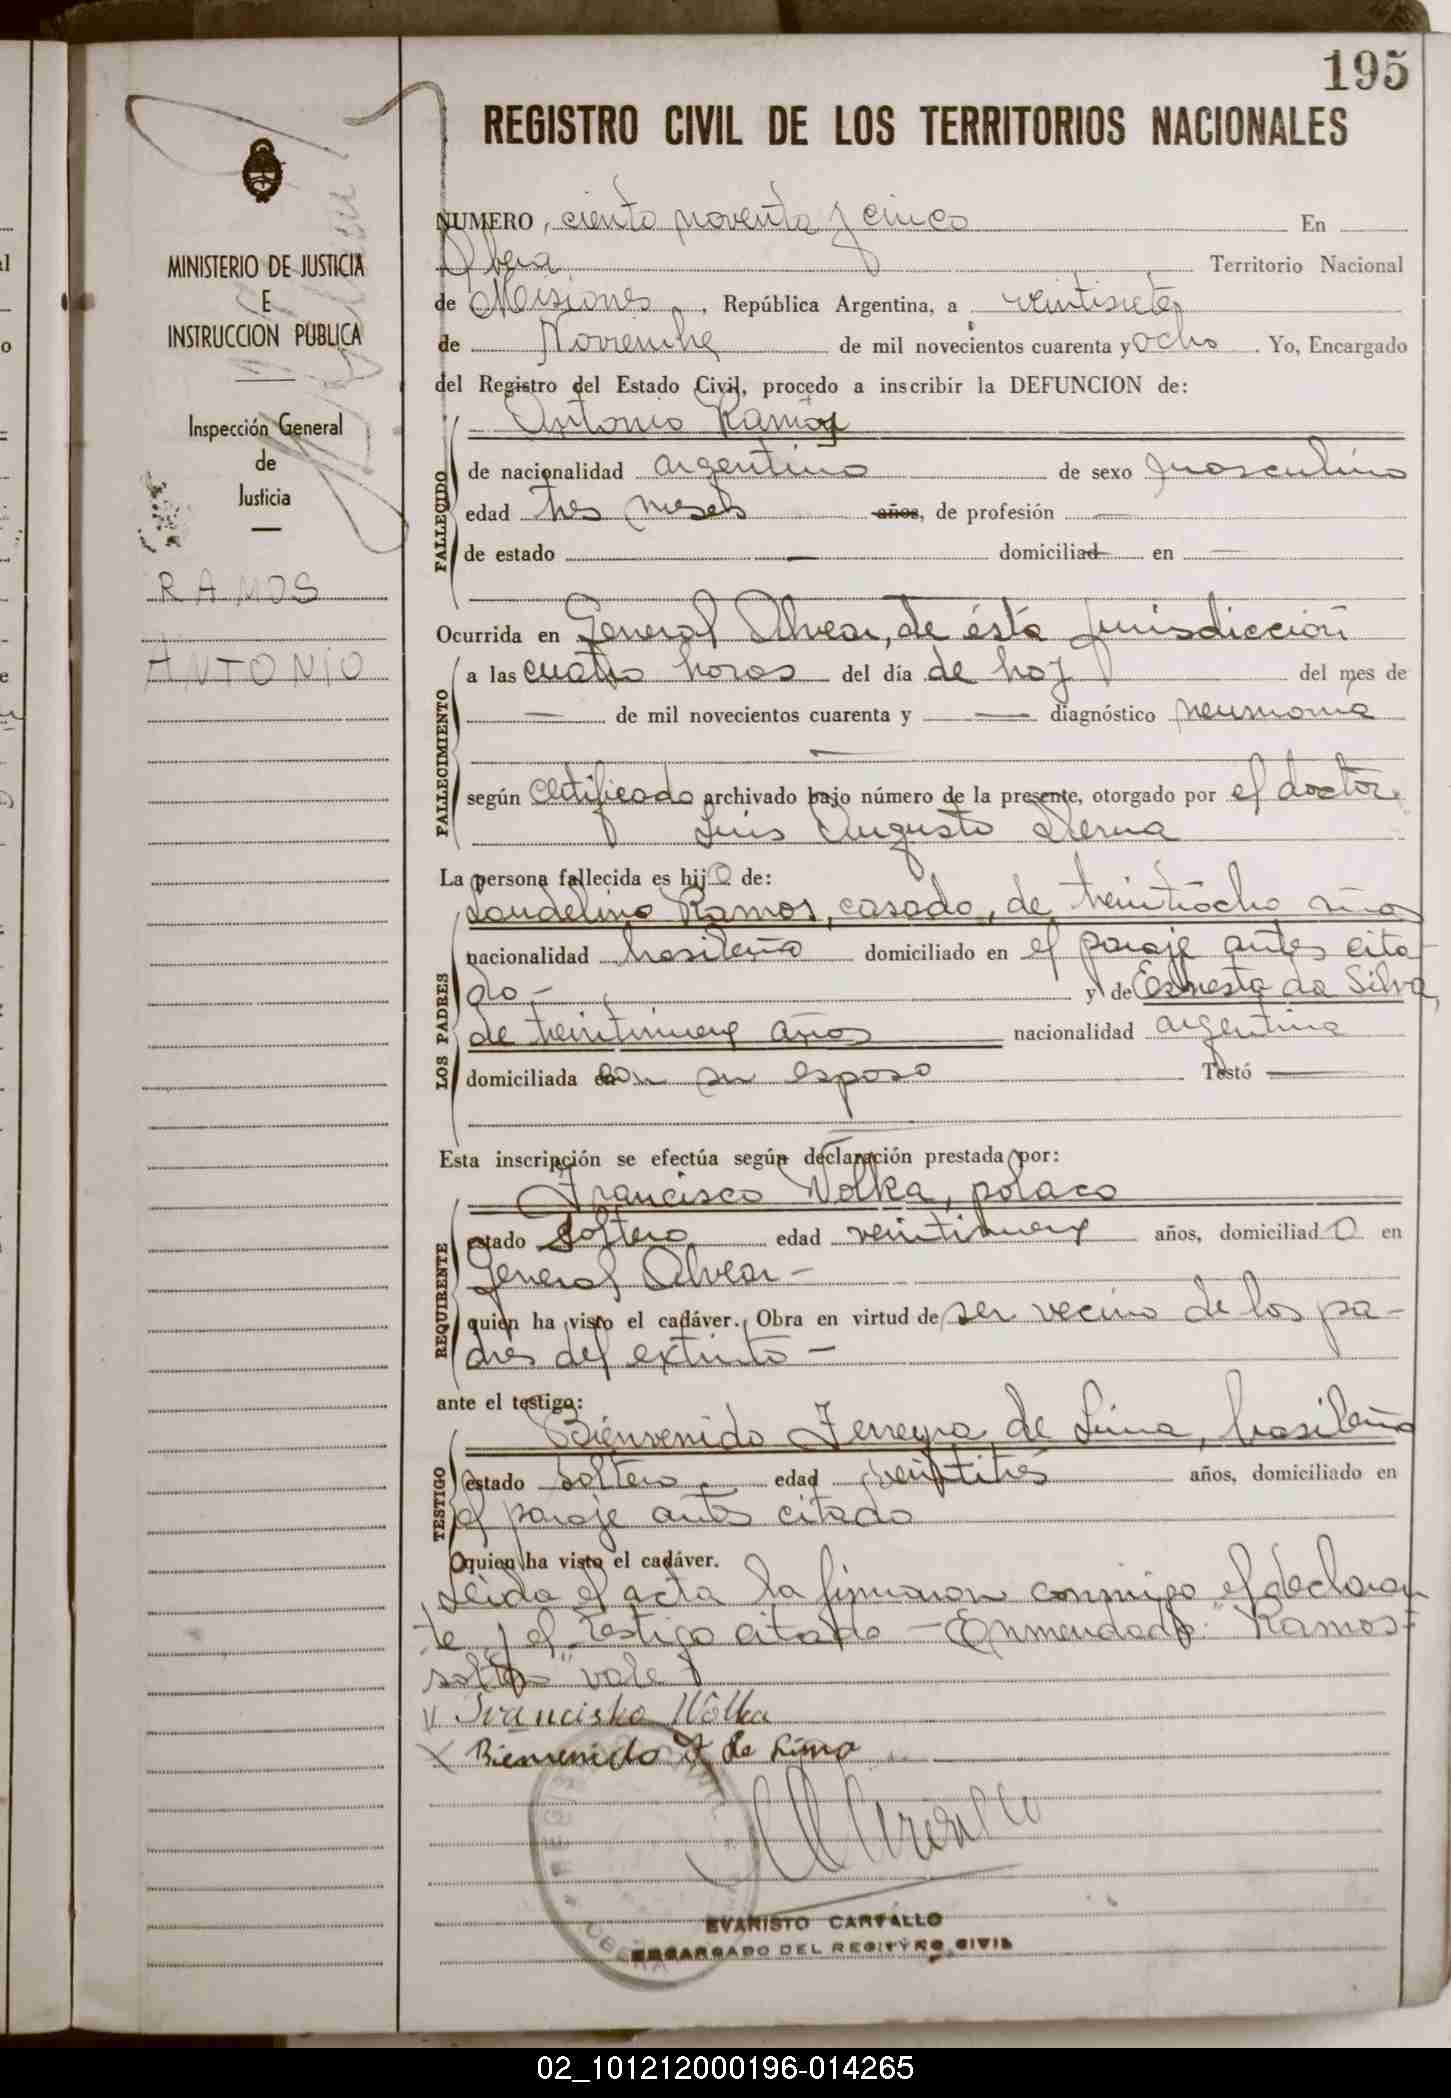 195
REGISTRO CIVIL DE LOS TERRITORIOS NACIONALES
MINISTERIO DE JUSTICIA
E
INSTRUCCION PUBLICA
Inspección General
de
Justicia
RAMOS
ANTONIO
NUMERO, ciento noventa y cinco En
Obera Territorio Nacional
de Misiones, República Argentina, a veintisiete
de Noviembre de mil novecientos cuarenta y ocho. Yo, Encargado
del Registro del Estado Civil, procedo a inscribir la DEFUNCION de:
Antonio Ramos
FALLECIDO
de nacionalidad argentino de sexo masculino
edad tres meses años, de profesión —
de estado — domiciliad en —
Ocurrida en General Alvear, de ésta jurisdicción
FALLECIMIENTO
a las cuatro horas del día de hoy del mes de
— de mil novecientos cuarenta y — diagnóstico neumonia
según certificado archivado bajo número de la presente, otorgado por el doctor
Luis Augusto Derna
La persona fallecida es hijo de:
LOS PADRES
Laudelino Ramos, casado, de treintiocho años
nacionalidad brasileña domiciliado en el paraje antes cita-
do - y de Ernesta da Silva,
de treintinueve años nacionalidad argentina
domiciliada con su esposo Testó —
Esta inscripción se efectúa según declaración prestada por:
REQUIRENTE
Francisco Wolka, polaco
estado soltero edad veintinueve años, domiciliado en
General Alvear -
quien ha visto el cadáver. Obra en virtud de ser vecino de los pa-
dres del extinto -
ante el testigo:
TESTIGO
Bienvenido Ferreyra de Lima, brasileño
estado soltero edad veintitres años, domiciliado en
el paraje antes citado
quien ha visto el cadáver.
Leida el acta la firmaron conmigo el declaran
te y el testigo citado - Enmendado: "Ramos-
soltero" vale
Francisko Wólka
Bienvenido F de Lima
EVARISTO CARVALLO
ENCARGADO DEL REGISTRO CIVIL
02_101212000196-014265